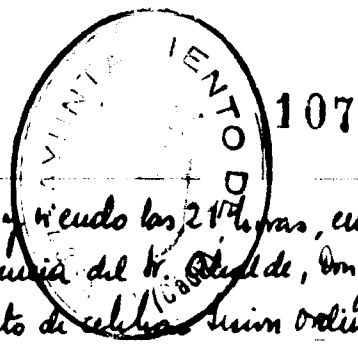 AYUNTAMIENTO D
107
y siendo las 21 horas, en
del Sr. Alcalde, Don
to de celebrar sesion ordin